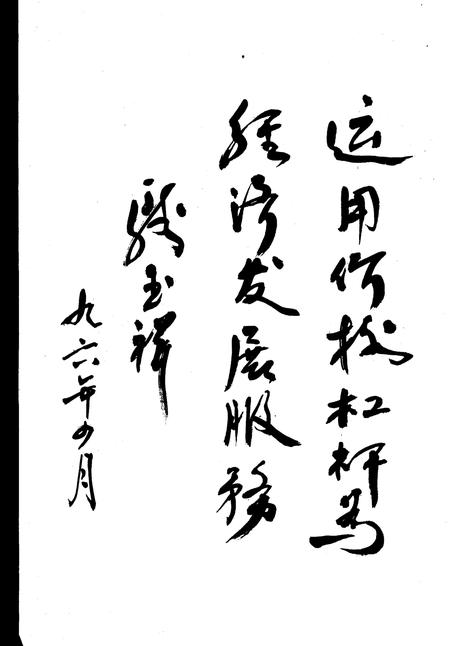 运用价格杠杆为
經济发展服務
玉祥
九六年月